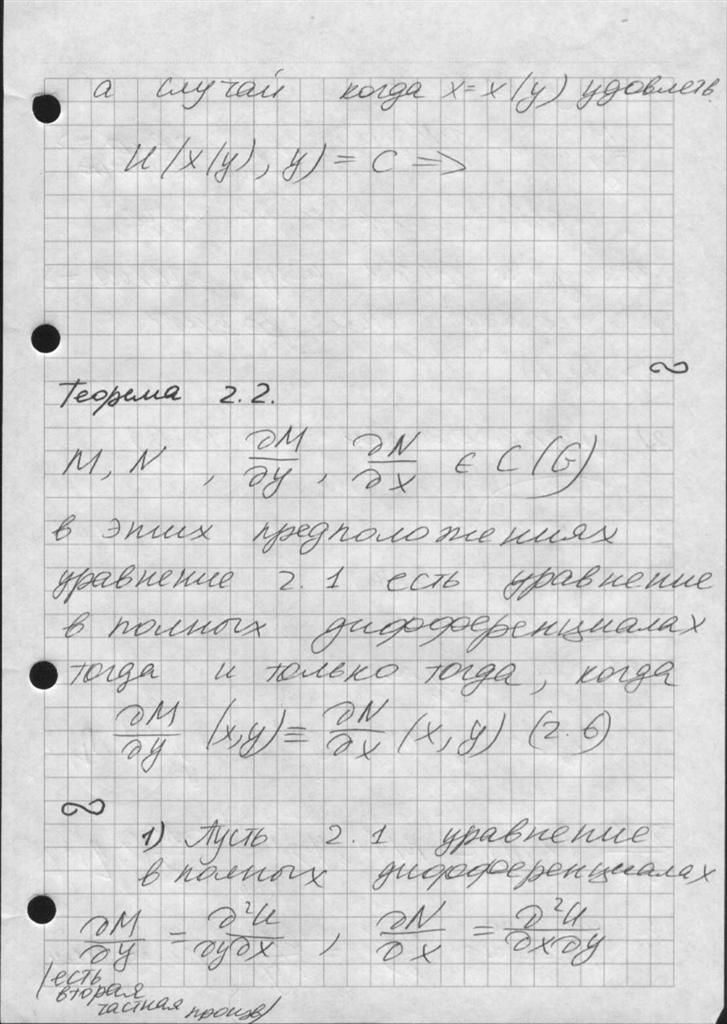 а случай когда x = x(y) удовлетв.
U(x(y), y) = C ⇒
Теорема 2.2.
M, N , ∂M/∂y , ∂N/∂x ∈ C(G)
в этих предположениях
уравнение 2.1 есть уравнение
в полных дифференциалах
тогда и только тогда, когда
∂M/∂y (x,y) ≡ ∂N/∂x (x, y) (2.6)
1) Пусть 2.1 уравнение
в полных дифференциалах
∂M/∂y = ∂²U/∂y∂x , ∂N/∂x = ∂²U/∂x∂y
(есть
вторая
частная произв)